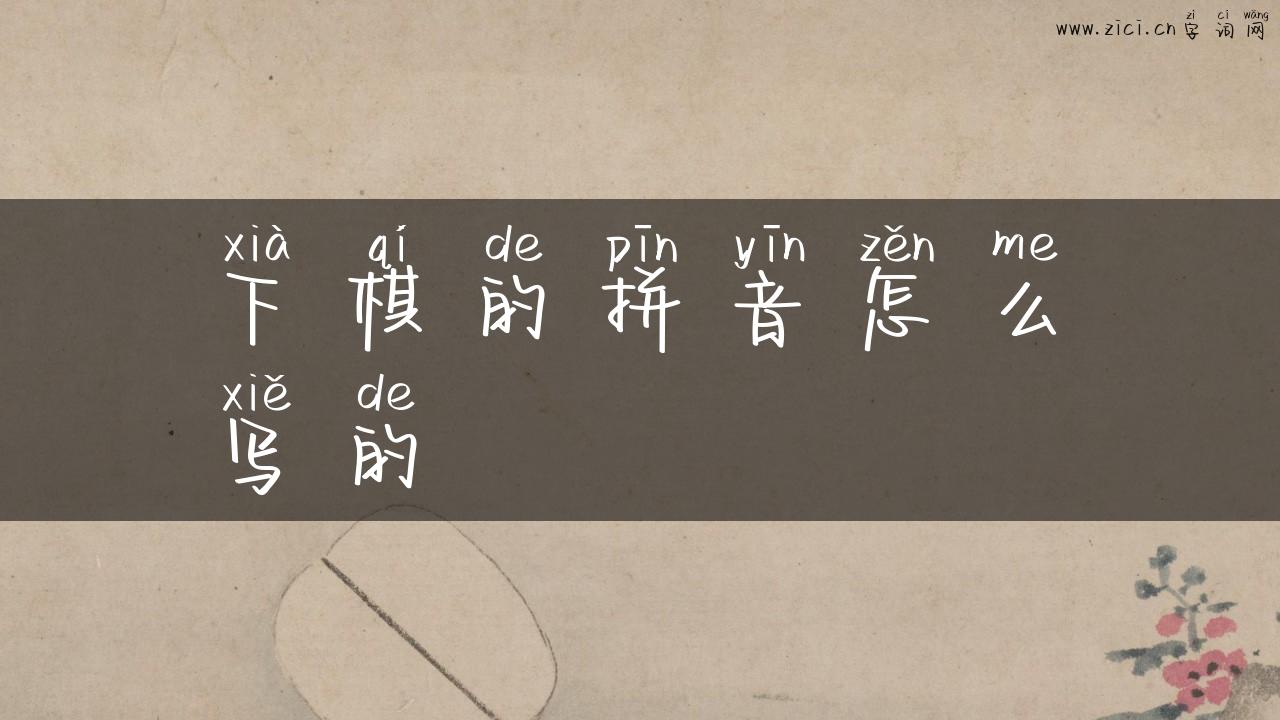 zì cí wǎng
www.zici.cn 字词网
xià qí de pīn yīn zěn me
下棋的拼音怎么
xiě de
写的